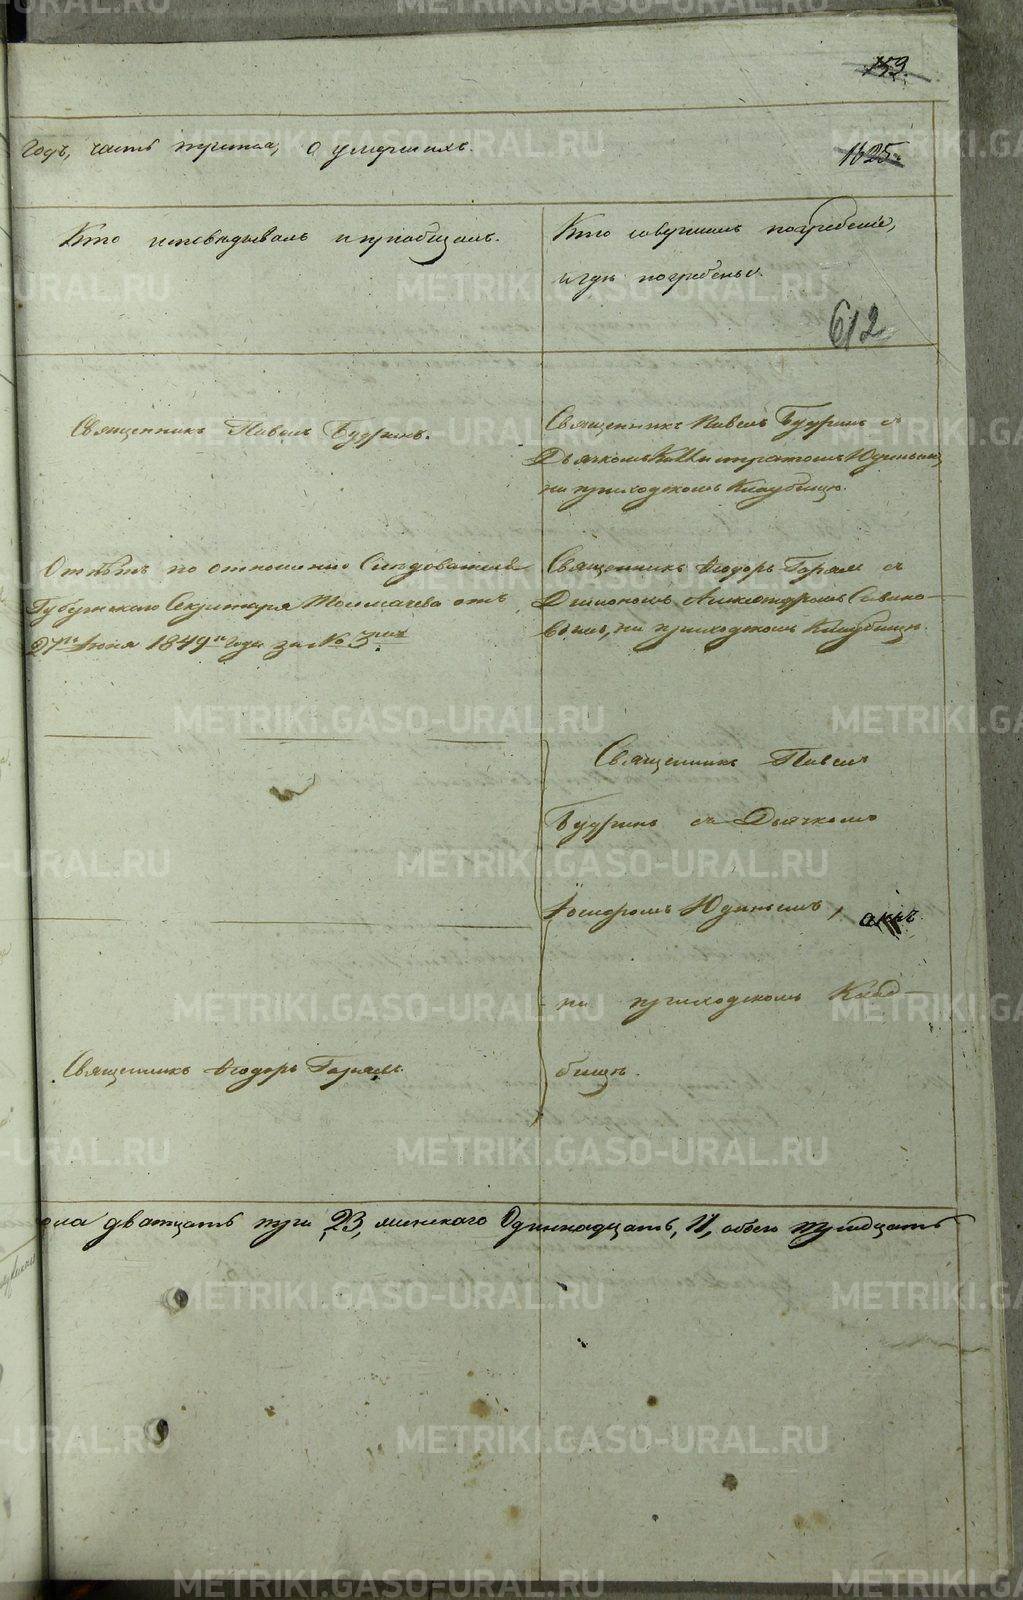 159.
годъ, часть третья, о умершихъ.
1625.
Кто исповѣдывалъ и приобщалъ.
Кто совершалъ погребеніе,
и гдѣ погребены.
612
Священникъ Павелъ Будринъ.
Священникъ Павелъ Будринъ съ
Дьячкомъ Каллистратомъ Юдинымъ,
на приходскомъ Кладбищѣ.
Отпѣтъ по отношенію Слѣдователя
Губернскаго Секретаря Толмачева отъ
27го Іюня 1849го года за № 3
Священникъ Ѳеодоръ съ
Діякономъ Александромъ
на приходскомъ Кладбищѣ.
Священникъ Павелъ
Будринъ съ Дьячкомъ
Юдинымъ,
на приходскомъКлад-
бищѣ.
Священникъ Ѳеодоръ
пола дватцать три 23, женскаго Одиннадцать, 11, обоего тридцать
METRIKI.GASO-URAL.RU